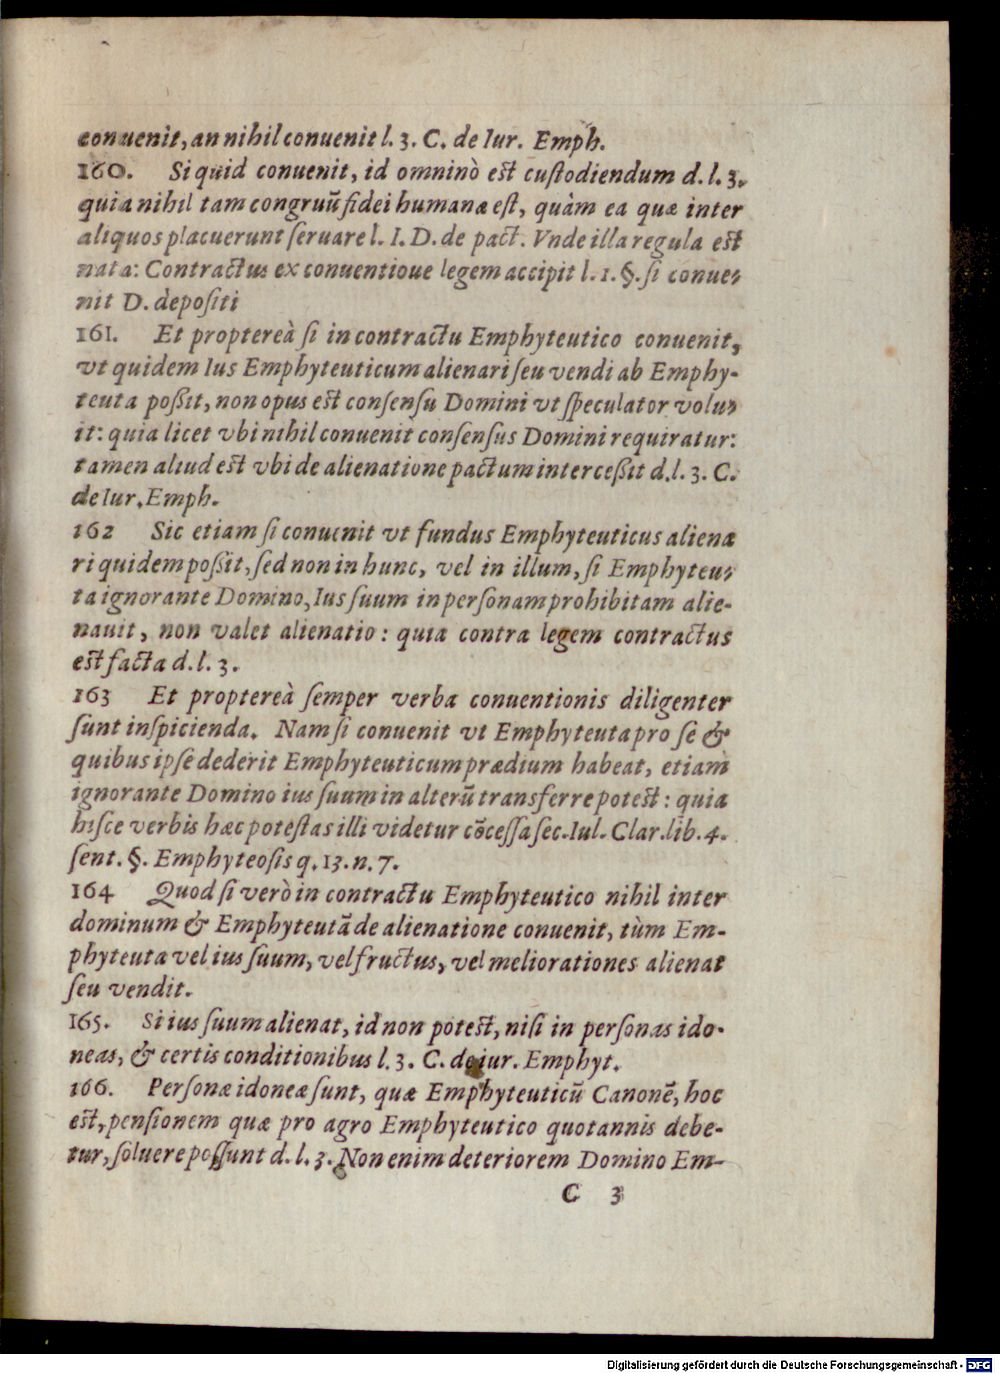 conuenit, an nihil conuenit l. 3. C. de Iur. Emph.
160. Si quid conuenit, id omninò est custodiendum d. l. 3.
quia nihil tam congruũ fidei humanæ est, quàm ea quæ inter
aliquos placuerunt seruare l. I. D. de pact. Vnde illa regula est
nata: Contractus ex conuentioue legem accipit l. 1. §. si conue-
nit D. depositi
161. Et proptereà si in contractu Emphyteutico conuenit,
vt quidem Ius Emphyteuticum alienari seu vendi ab Emphy-
teuta poßit, non opus est consensu Domini vt speculator volu-
it: quia licet vbi nihil conuenit consensus Domini requiratur:
tamen aliud est vbi de alienatione pactum interceßit d. l. 3. C.
de Iur. Emph.
162 Sic etiam si conuenit vt fundus Emphyteuticus aliena
ri quidem poßit, sed non in hunc, vel in illum, si Emphyteu-
ta ignorante Domino, Ius suum in personam prohibitam alie-
nauit, non valet alienatio: quia contra legem contractus
est facta d. l. 3.
163 Et proptereà semper verba conuentionis diligenter
sunt inspicienda. Nam si conuenit vt Emphyteuta pro se &
quibus ipse dederit Emphyteuticum prædium habeat, etiam
ignorante Domino ius suum in alterũ transferre potest: quia
hisce verbis hæc potestas illi videtur cõcessa sec. Iul. Clar. lib. 4.
sent. §. Emphyteosis q. 13. n. 7.
164 Quod si verò in contractu Emphyteutico nihil inter
dominum & Emphyteutã de alienatione conuenit, tùm Em-
phyteuta vel ius suum, vel fructus, vel meliorationes alienat
seu vendit.
165. Si ius suum alienat, id non potest, nisi in personas ido-
neas, & certis conditionibus l. 3. C. de iur. Emphyt.
166. Personæ idoneæ sunt, quæ Emphyteuticũ Canonẽ, hoc
est, pensionem quæ pro agro Emphyteutico quotannis debe-
tur, soluere possunt d. l. 3. Non enim deteriorem Domino Em-
C 3
Digitalisierung gefördert durch die Deutsche Forschungsgemeinschaft - DFG